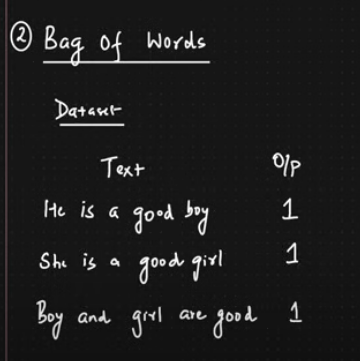 ② Bag of Words
Dataset
Text O/P
He is a good boy 1
She is a good girl 1
Boy and girl are good 1